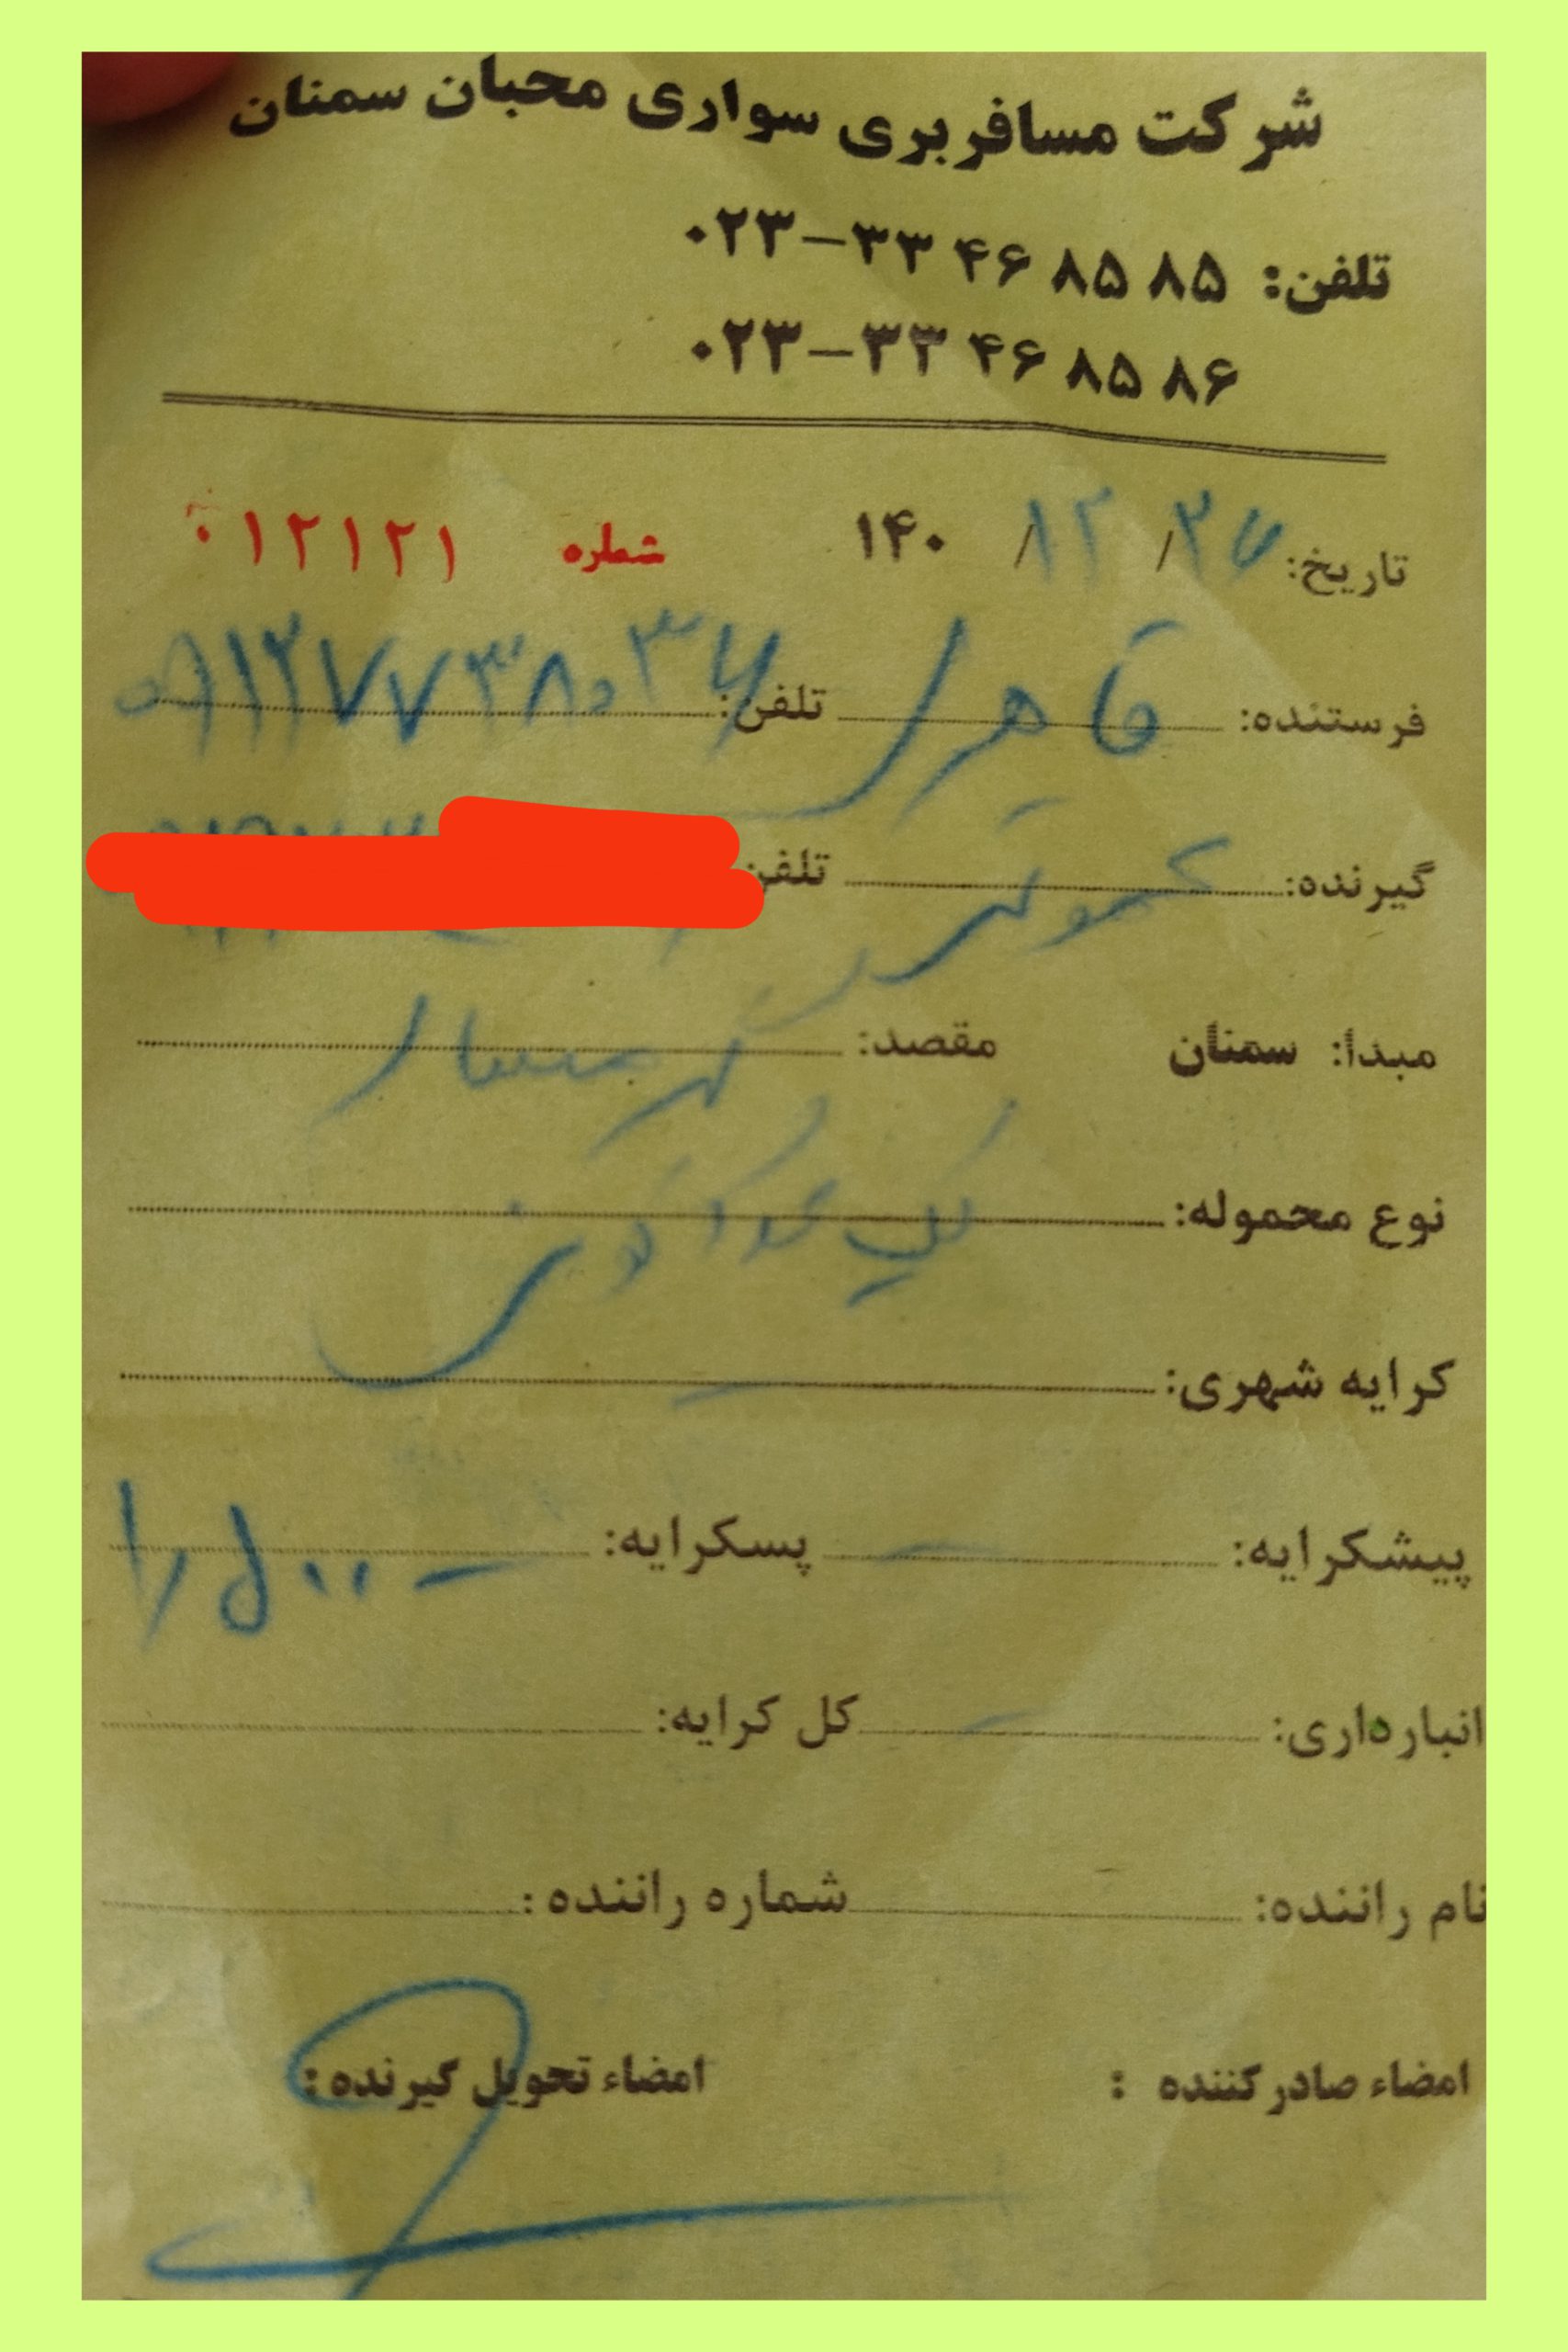 شرکت مسافربری سواری محبان سمنان
تلفن: ۰۲۳-۳۳ ۴۶ ۸۵ ۸۵
۰۲۳-۳۳ ۴۶ ۸۵ ۸۶
تاریخ: ۲۷ / ۱۲ / ۱۴۰ شماره ۰۱۲۱۲۱
فرستنده: تلفن:
گیرنده: تلفن
مبدا: سمنان مقصد: گرمسار
نوع محموله: یک عدد کارتن
کرایه شهری:
پیشکرایه: - پسکرایه: ۱,۵۰۰-
انبارداری: - کل کرایه:
نام راننده: شماره راننده:
امضاء صادر کننده : امضاء تحویل گیرنده :